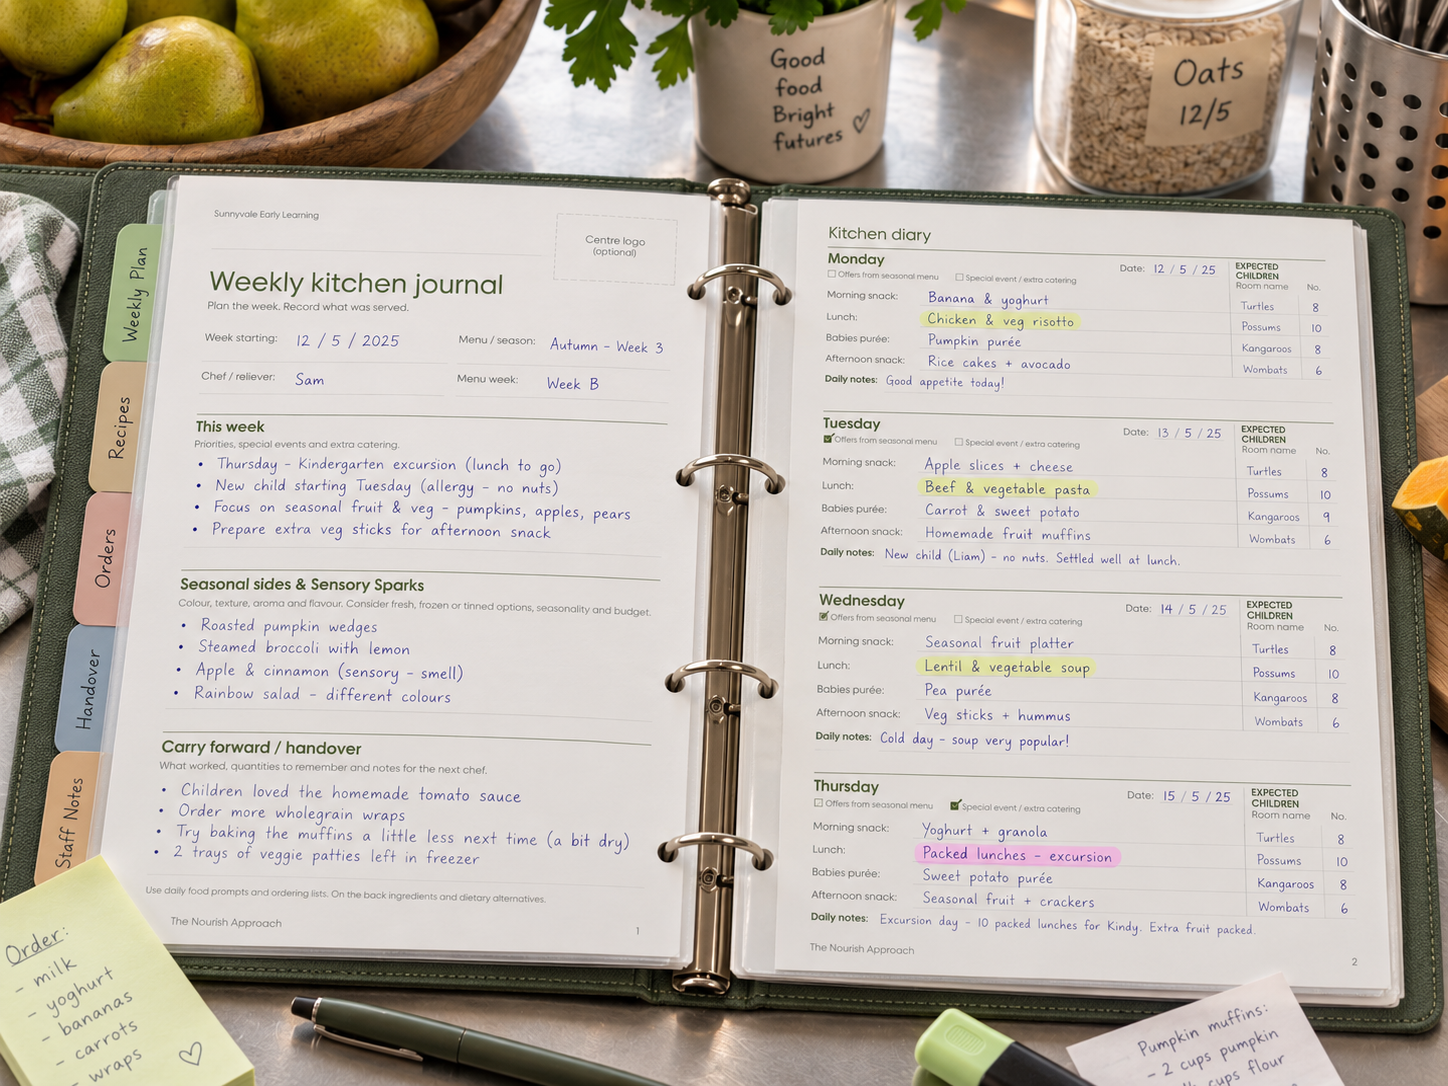 Good
food
Bright
futures ♡
Oats
12/5
Weekly Plan
Recipes
Orders
Handover
Staff Notes
Sunnyvale Early Learning
Centre logo
(optional)
Weekly kitchen journal
Plan the week. Record what was served.
Week starting: 12 / 5 / 2025
Menu / season: Autumn - Week 3
Chef / reliever: Sam
Menu week: Week B
This week
Priorities, special events and extra catering.
• Thursday - Kindergarten excursion (lunch to go)
• New child starting Tuesday (allergy - no nuts)
• Focus on seasonal fruit & veg - pumpkins, apples, pears
• Prepare extra veg sticks for afternoon snack
Seasonal sides & Sensory Sparks
Colour, texture, aroma and flavour. Consider fresh, frozen or tinned options, seasonality and budget.
• Roasted pumpkin wedges
• Steamed broccoli with lemon
• Apple & cinnamon (sensory - smell)
• Rainbow salad - different colours
Carry forward / handover
What worked, quantities to remember and notes for the next chef.
• Children loved the homemade tomato sauce
• Order more wholegrain wraps
• Try baking the muffins a little less next time (a bit dry)
• 2 trays of veggie patties left in freezer
Use daily food prompts and ordering lists. On the back ingredients and dietary alternatives.
The Nourish Approach
1
Kitchen diary
Monday
Offers from seasonal menu
Special event / extra catering
Date: 12 / 5 / 25
Morning snack: Banana & yoghurt
Lunch: Chicken & veg risotto
Babies purée: Pumpkin purée
Afternoon snack: Rice cakes + avocado
Daily notes: Good appetite today!
EXPECTED
CHILDREN
Room name No.
Turtles 8
Possums 10
Kangaroos 8
Wombats 6
Tuesday
Offers from seasonal menu
Special event / extra catering
Date: 13 / 5 / 25
Morning snack: Apple slices + cheese
Lunch: Beef & vegetable pasta
Babies purée: Carrot & sweet potato
Afternoon snack: Homemade fruit muffins
Daily notes: New child (Liam) - no nuts. Settled well at lunch.
EXPECTED
CHILDREN
Room name No.
Turtles 8
Possums 10
Kangaroos 9
Wombats 6
Wednesday
Offers from seasonal menu
Special event / extra catering
Date: 14 / 5 / 25
Morning snack: Seasonal fruit platter
Lunch: Lentil & vegetable soup
Babies purée: Pea purée
Afternoon snack: Veg sticks + hummus
Daily notes: Cold day - soup very popular!
EXPECTED
CHILDREN
Room name No.
Turtles 8
Possums 10
Kangaroos 8
Wombats 6
Thursday
Offers from seasonal menu
Special event / extra catering
Date: 15 / 5 / 25
Morning snack: Yoghurt + granola
Lunch: Packed lunches - excursion
Babies purée: Sweet potato purée
Afternoon snack: Seasonal fruit + crackers
Daily notes: Excursion day - 10 packed lunches for Kindy. Extra fruit packed.
EXPECTED
CHILDREN
Room name No.
Turtles 8
Possums 10
Kangaroos 8
Wombats 6
The Nourish Approach
2
Order:
- milk
- yoghurt
- bananas
- carrots
- wraps ♡
Pumpkin muffins:
- 2 cups pumpkin
cups flour